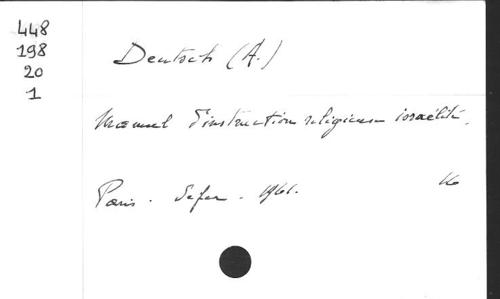 448
198
20
1
Deutsch (A.)
Manuel d'instruction religieuse israélite.
Paris. Sefer. 1961.